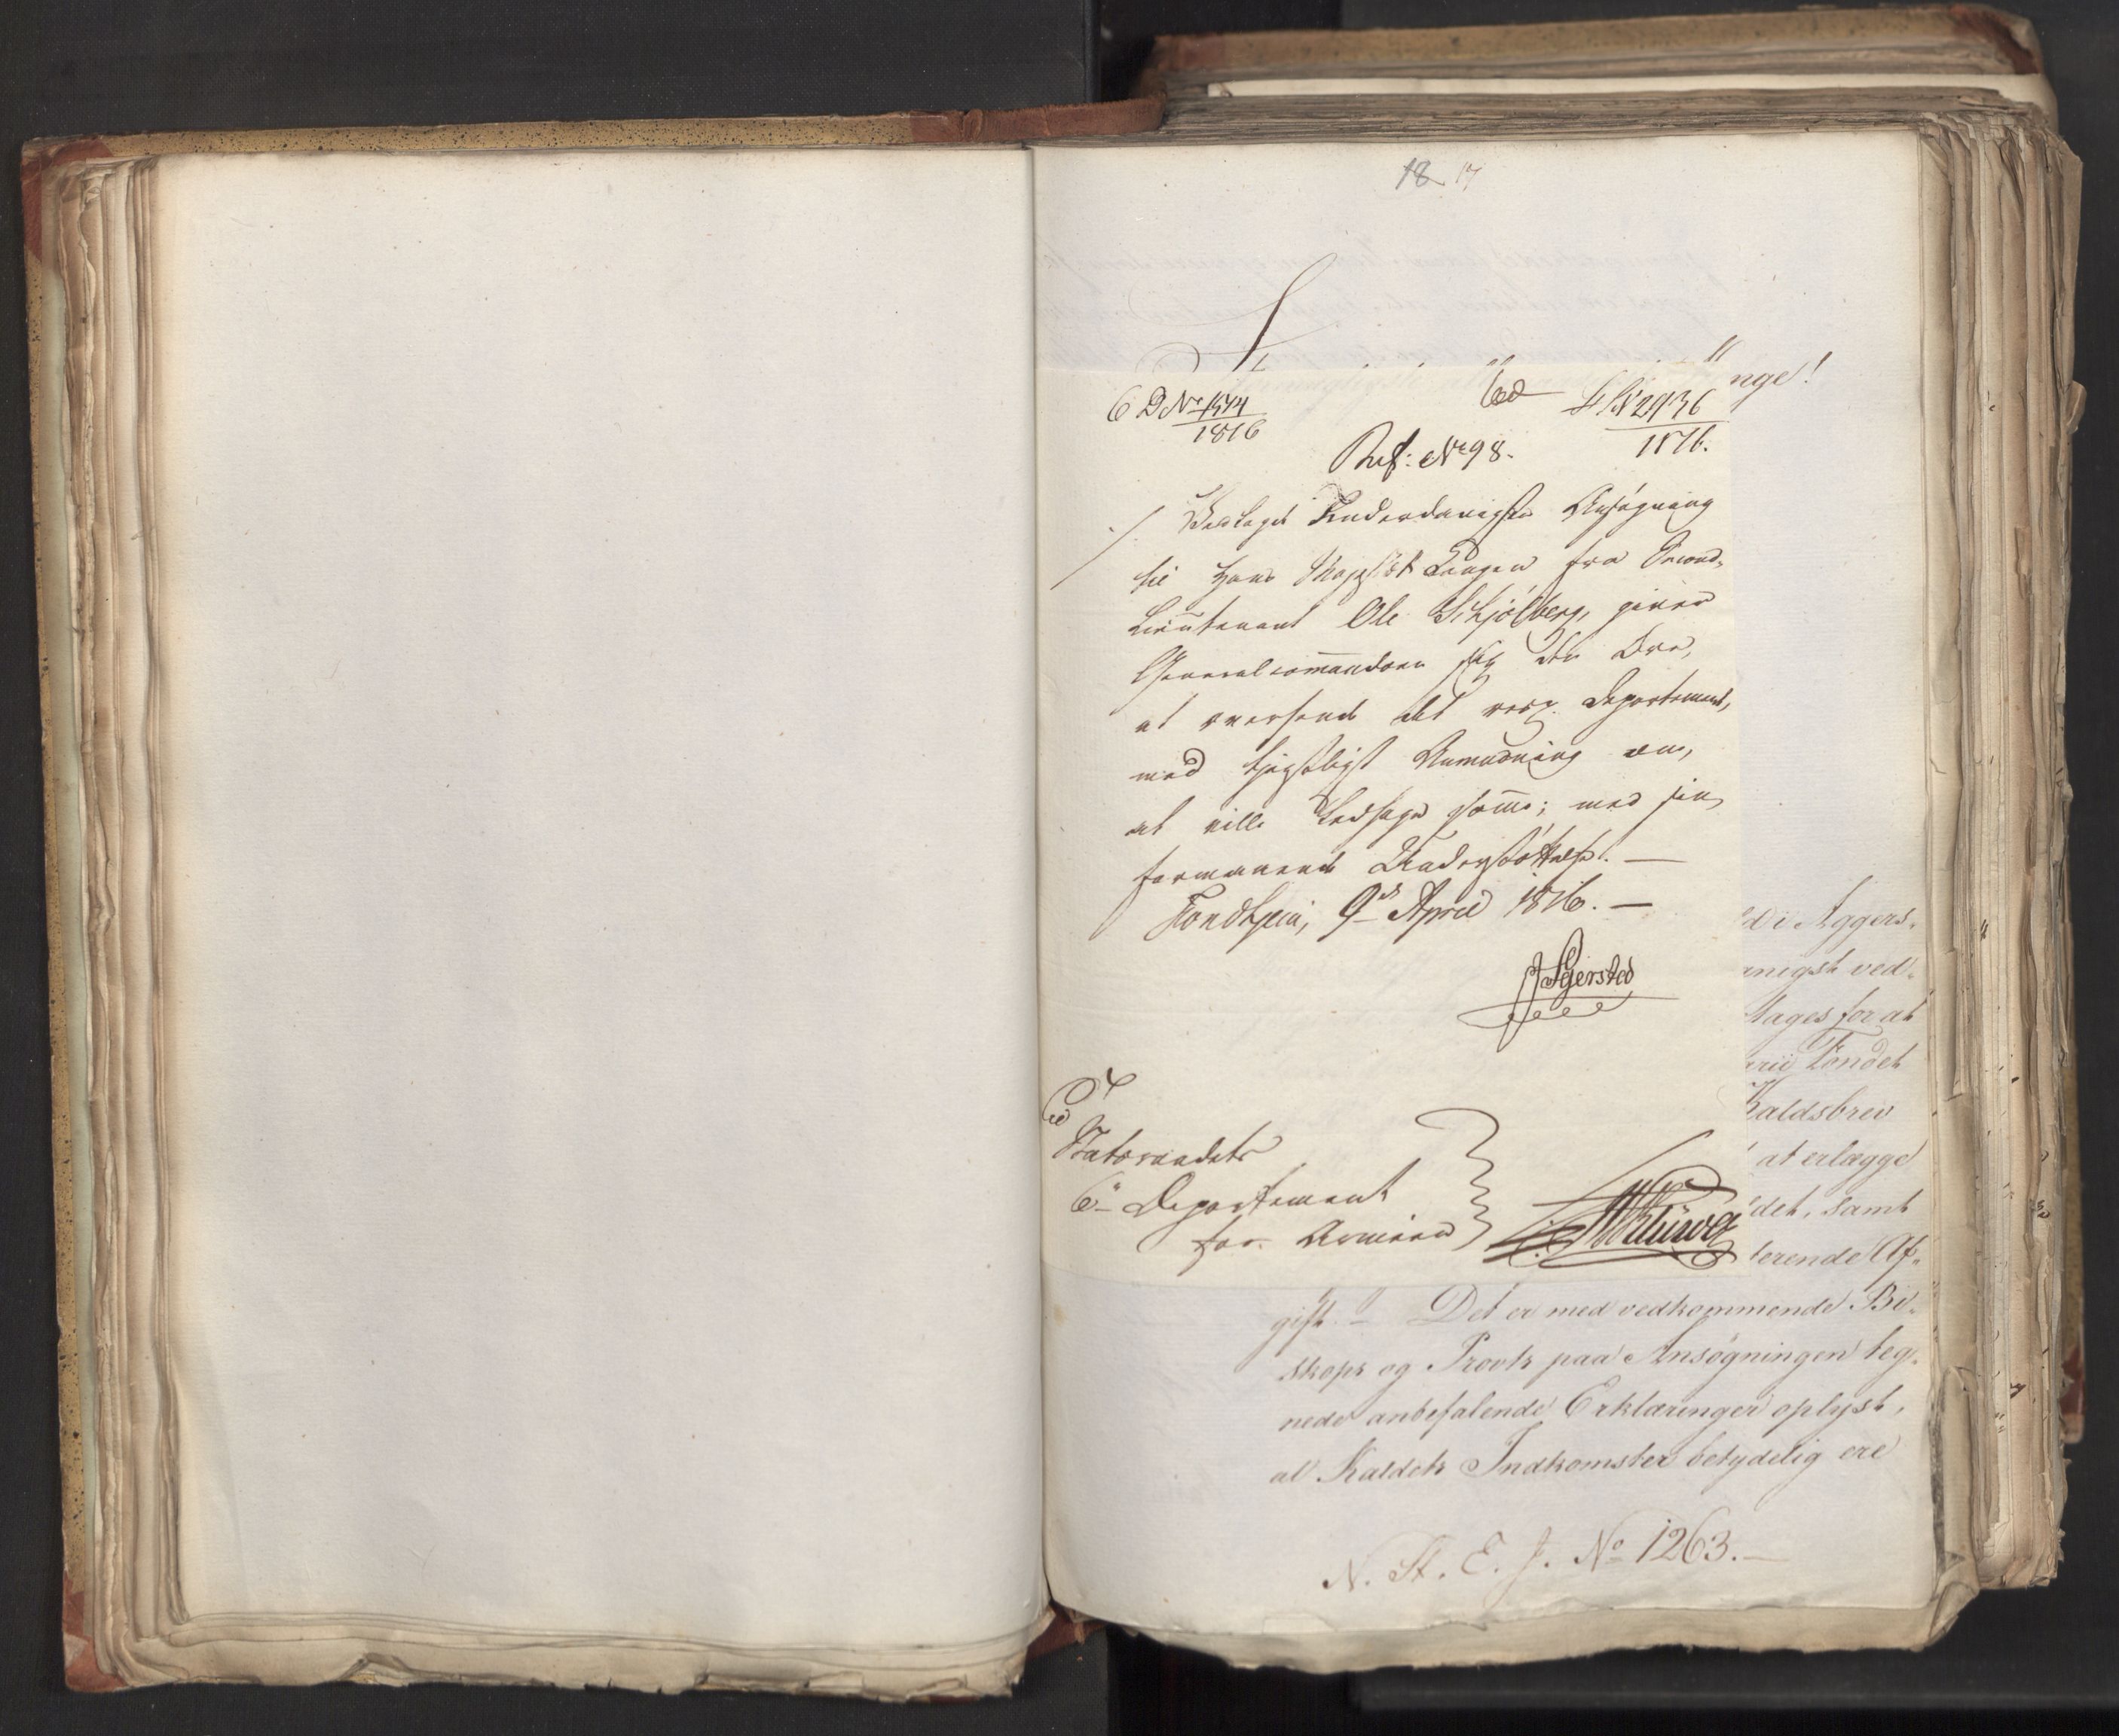 18 17
nge!
6 D No 1574
1816
L No 2936
1816.
Ref: No 98.
Vedlagde Underdanigste Ansøgning
til Hans Majestæt Kongen fra Second-
Lieutenant Ole Schjølberg, giver
Generalcommandoen sig den Ære,
at oversende det resp. Departement,
med tjenstligst Anmodning om,
at ville ledsage samme; med sin
formaaende Understøttelse. —
Trondhjem, 9de April 1816. —
Statsraadets
6te Departement
for Armeen
d i Aggers-
anigst ved-
tages for at
Fondet
Kaldsbrev
at erlægge
det, samt
terende Af-
gift. – Det er med vedkommende Bi-
skops og Provsts paa Ansøgningen teg-
nede anbefalende Erklæringer oplyst,
at Kaldets Indkomster betydelig ere
N. St. E. J. No 1263. —